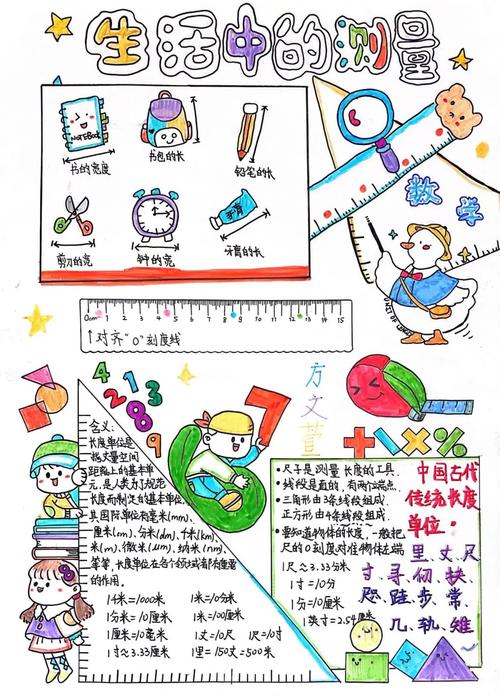 生活中的测量
NOTEBOOK
书的宽度
书包的长
铅笔的长
剪刀的宽
钟的宽
牙膏
牙膏的长
数学
0cm 1 2 3 4 5 6 7 8 9 10 11 12 13 14 15
↑对齐"0"刻度线
4 2 1 3 8 9
7
方文萱
+ \ × %
含义:
长度单位是
指丈量空间
距离上的基本单
元,是人类为了规范
长度而制定的基本单位,
其国际单位有毫米(mm)、
厘米(cm)、分米(dm)、千米(km)、
米(m)、微米(μm)、纳米(nm)
等等,长度单位在各个领域都有重要
的作用。
1千米=1000米
1米=10分米
1分米=10厘米
1米=100厘米
1厘米=10毫米
1丈=10尺
1尺=10寸
1寸≈3.33厘米
1里=150丈=500米
尺子是测量长度的工具。
线段是直的,有两个端点。
三角形由3条线段组成,
正方形由4条线段组成。
要知道物体的长度,一般把
尺的0刻度对准物体左端
1尺≈3.33分米
1寸=10分
1分=10厘
1英寸=2.54厘米
中国古代
传统长度
单位:
里、丈、尺
寸、寻、仞、扶、
咫、跬、步、常、
几、轨、雉